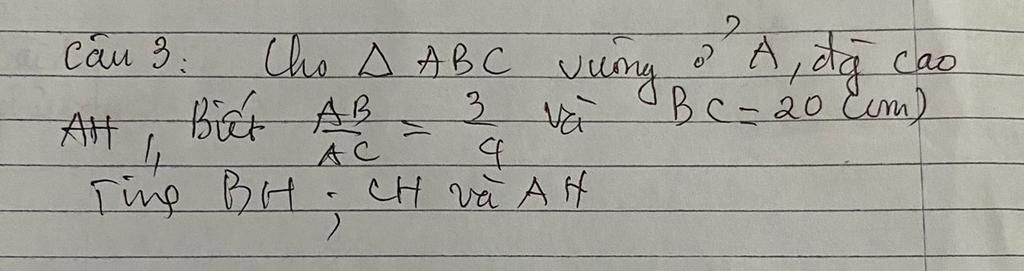 Câu 3: Cho Δ ABC vuông ở A, đg cao
AH, Biết AB/AC = 3/4 và BC = 20 (cm)
Tính BH; CH và AH